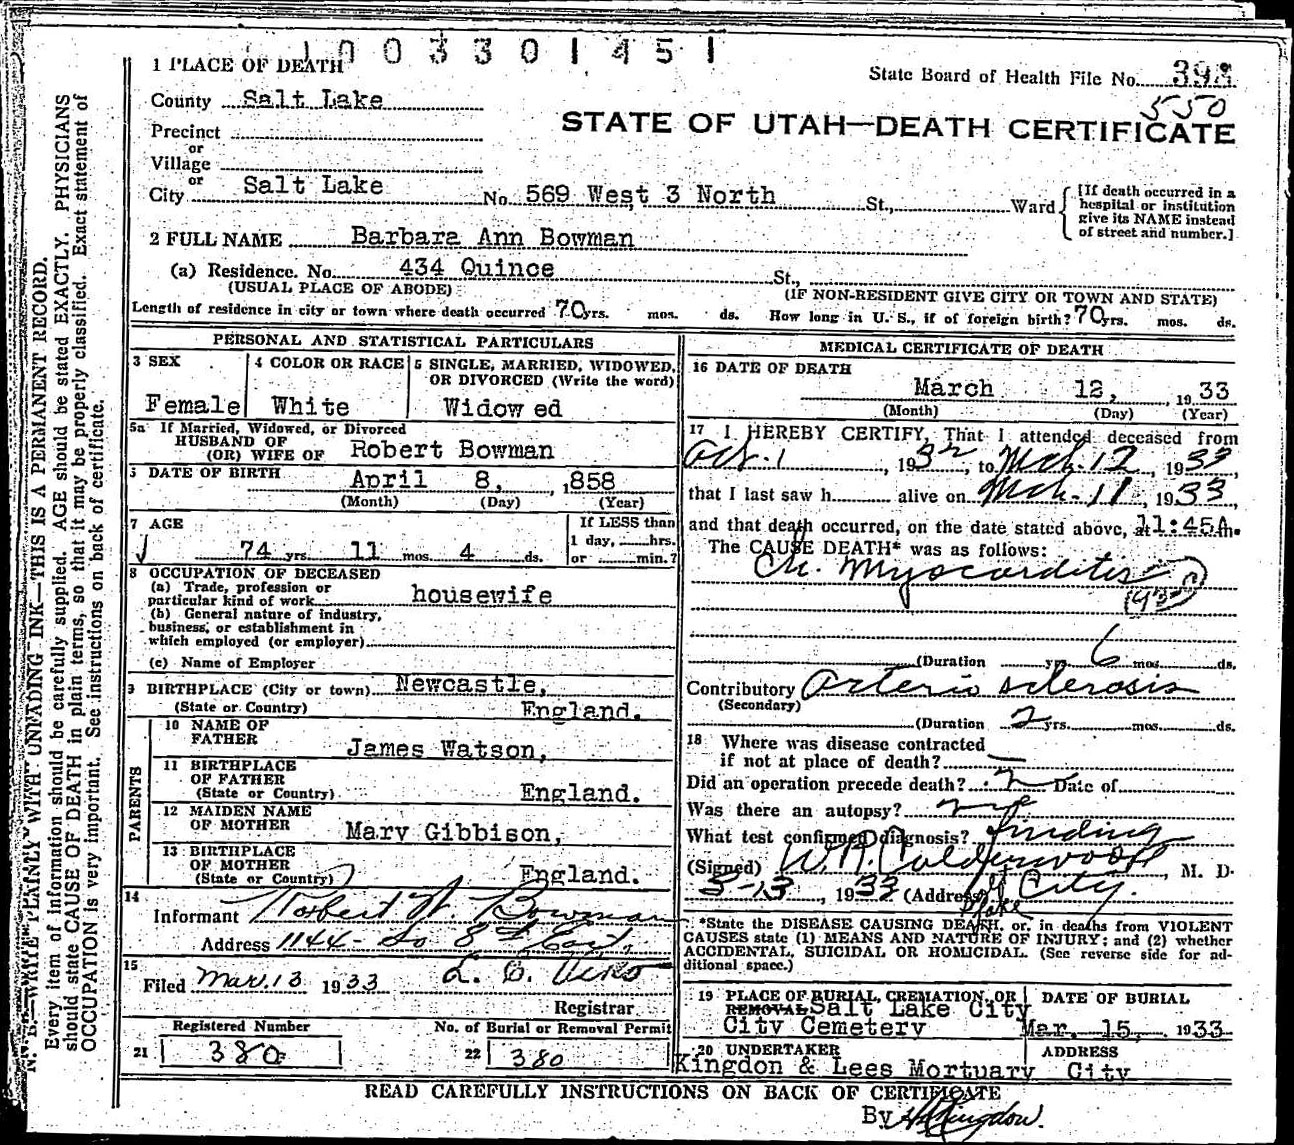 1003301451
1 PLACE OF DEATH
State Board of Health File No. 398
550
County Salt Lake
STATE OF UTAH—DEATH CERTIFICATE
Precinct
or
Village
or
City Salt Lake No. 569 West 3 North St., Ward
[If death occurred in a
hospital or institution
give its NAME instead
of street and number.]
2 FULL NAME Barbara Ann Bowman
(a) Residence. No. 434 Quince St.,
(USUAL PLACE OF ABODE) (IF NON-RESIDENT GIVE CITY OR TOWN AND STATE)
Length of residence in city or town where death occurred 70 yrs. mos. ds. How long in U. S., if of foreign birth? 70 yrs. mos. ds.
PERSONAL AND STATISTICAL PARTICULARS
3 SEX
Female
4 COLOR OR RACE
White
5 SINGLE, MARRIED, WIDOWED,
OR DIVORCED (Write the word)
Widowed
5a If Married, Widowed, or Divorced
HUSBAND OF
(OR) WIFE OF Robert Bowman
6 DATE OF BIRTH April 8, 1858
(Month) (Day) (Year)
7 AGE
74 yrs. 11 mos. 4 ds.
If LESS than
1 day, hrs.
or min.?
8 OCCUPATION OF DECEASED
(a) Trade, profession or
particular kind of work housewife
(b) General nature of industry,
business, or establishment in
which employed (or employer)
(c) Name of Employer
9 BIRTHPLACE (City or town) Newcastle,
(State or Country) England.
PARENTS
10 NAME OF
FATHER James Watson,
11 BIRTHPLACE
OF FATHER
(State or Country) England.
12 MAIDEN NAME
OF MOTHER Mary Gibbison,
13 BIRTHPLACE
OF MOTHER
(State or Country) England.
14
Informant Robert W. Bowman
Address 1144 So 8th East
15
Filed Mar. 13 1933 L. E. Viko
Registrar
Registered Number
21 380
No. of Burial or Removal Permit
22 380
MEDICAL CERTIFICATE OF DEATH
16 DATE OF DEATH
March 12, 1933
(Month) (Day) (Year)
17 I HEREBY CERTIFY, That I attended deceased from
Oct. 1, 1932, to Mch. 12, 1933,
that I last saw h alive on Mch. 11, 1933,
and that death occurred, on the date stated above, at 11:45A m.
The CAUSE DEATH* was as follows:
Ch. Myocarditis
(93)
(Duration yrs. 6 mos. ds.
Contributory Arterio sclerosis
(Secondary)
(Duration 2 yrs. mos. ds.
18 Where was disease contracted
if not at place of death?
Did an operation precede death? Date of
Was there an autopsy? no
What test confirmed diagnosis? finding
(Signed) W. R. Calderwood, M. D.
3-13, 1933 (Address) S Lake City.
*State the DISEASE CAUSING DEATH, or, in deaths from VIOLENT
CAUSES state (1) MEANS AND NATURE OF INJURY; and (2) whether
ACCIDENTAL, SUICIDAL OR HOMICIDAL. (See reverse side for ad-
ditional space.)
19 PLACE OF BURIAL, CREMATION, OR
REMOVAL Salt Lake City
City Cemetery
DATE OF BURIAL
Mar. 15, 1933
20 UNDERTAKER
Kingdon & Lees Mortuary
ADDRESS
City
READ CAREFULLY INSTRUCTIONS ON BACK OF CERTIFICATE
By Kingdon.
N. B.—WRITE PLAINLY WITH UNFADING INK—THIS IS A PERMANENT RECORD.
Every item of information should be carefully supplied. AGE should be stated EXACTLY. PHYSICIANS
should state CAUSE OF DEATH in plain terms, so that it may be properly classified. Exact statement of
OCCUPATION is very important. See instructions on back of certificate.